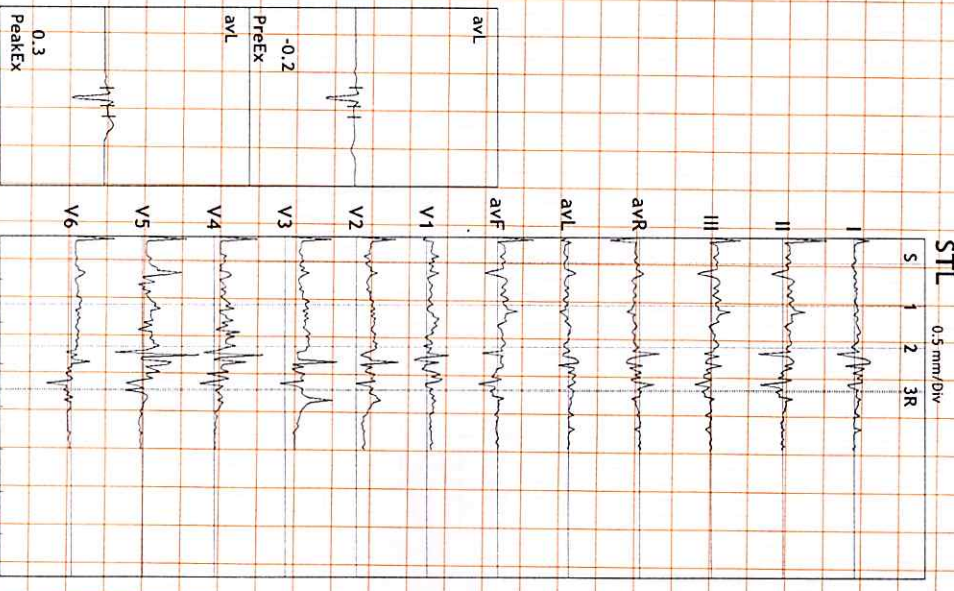 STL 0.5 mm/Div
S 1 2 3R
I
II
III
avR
avL
avF
V1
V2
V3
V4
V5
V6
avL
-0.2
PreEx
avL
0.3
PeakEx